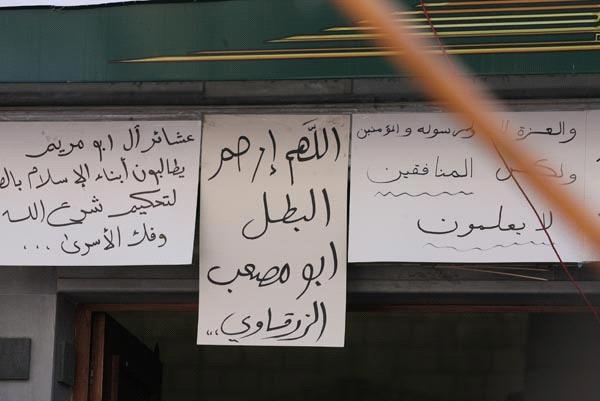 والعزة لله ولرسوله والمؤمنين
ولكن المنافقين
لا يعلمون
اللهم إرحم
البطل
ابو مصعب
الزرقاوي،،،
عشائر آل ابو مريم
يطالبون أبناء الإسلام
لتحكيم شرع الله
وفك الأسرى ...